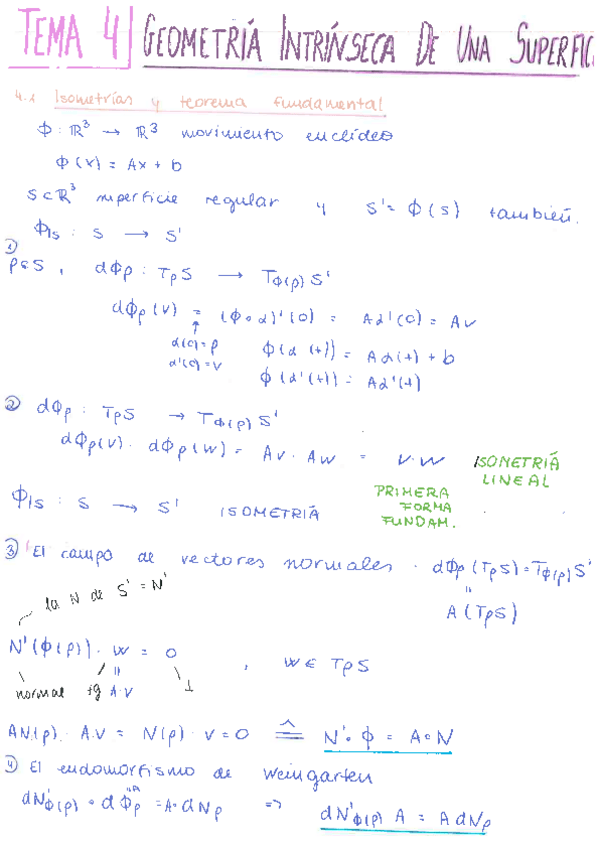 TEMA 4 | GEOMETRÍA INTRÍNSECA DE UNA SUPERFIC
4.1 Isometrías y teorema fundamental
Φ : ℝ³ → ℝ³ movimiento euclídeo
Φ(x) = Ax + b
S⊂ℝ³ superficie regular y S' = Φ(S) también.
Φ|s : S → S'
① p∈S, dΦp : TpS → TΦ(p) S'
dΦp(v) = (Φ∘α)'(0) = Aα'(0) = Av
↑
α(0) = p
α'(0) = v
Φ(α(t)) = Aα(t) + b
Φ(α'(t)) = Aα'(t)
② dΦp : TpS → TΦ(p) S'
dΦp(v) · dΦp(w) = Av · Aw = v·w ISOMETRÍA LINEAL
PRIMERA FORMA FUNDAM.
Φ|s : S → S' ISOMETRÍA
③ El campo de vectores normales · dΦp (TpS) = TΦ(p) S'
"
A (TpS)
la N de S' = N'
N'(Φ(p)) · w = 0 , w∈ TpS
normal tg A·v ⊥
AN(p) · A·v = N(p) · v = 0 ≙ N'∘Φ = A∘N
④ El endomorfismo de Weingarten
dN'Φ(p) ∘ dΦp = A∘dNp => dN'Φ(p) A = A dNp